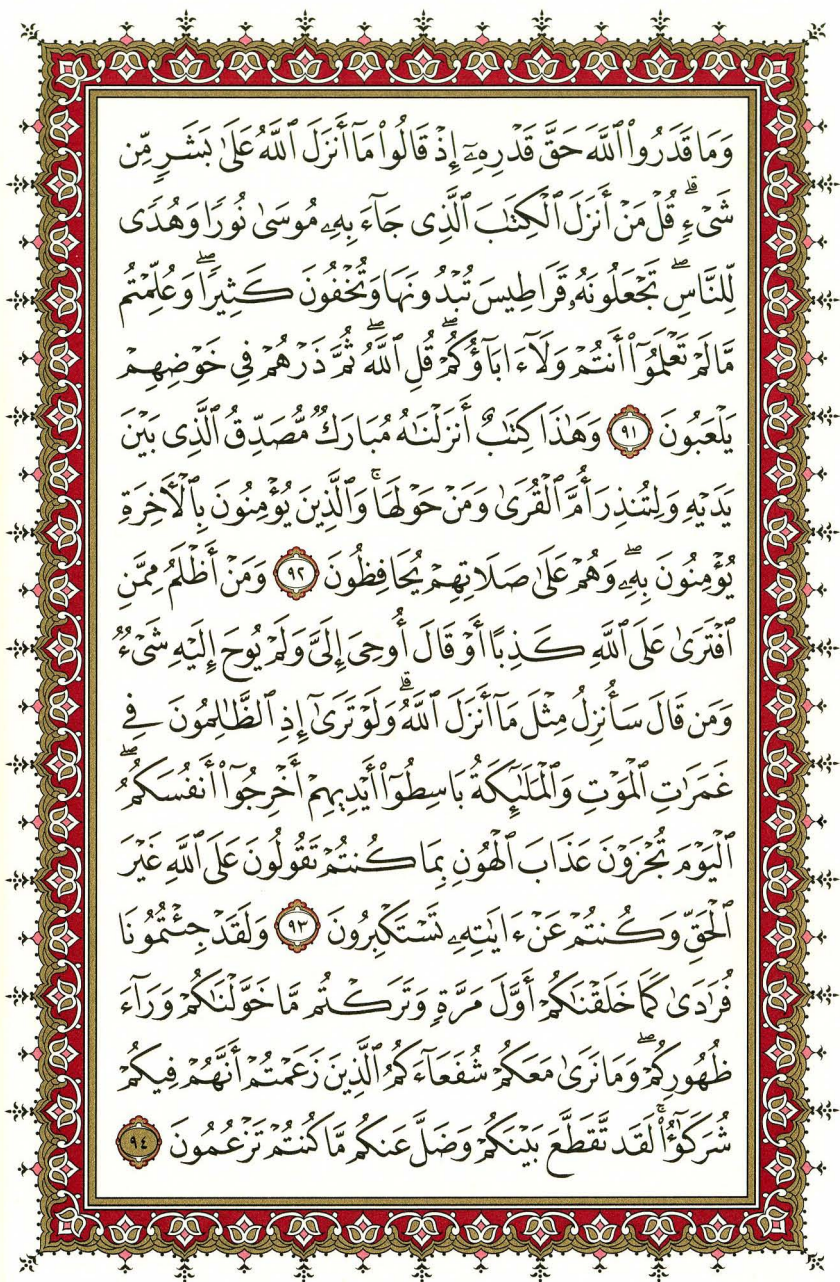 وَمَا قَدَرُوا۟ ٱللَّهَ حَقَّ قَدْرِهِۦٓ إِذْ قَالُوا۟ مَآ أَنزَلَ ٱللَّهُ عَلَىٰ بَشَرٍ مِّن
شَىْءٍ ۗ قُلْ مَنْ أَنزَلَ ٱلْكِتَٰبَ ٱلَّذِى جَآءَ بِهِۦ مُوسَىٰ نُورًا وَهُدًى
لِّلنَّاسِ ۖ تَجْعَلُونَهُۥ قَرَاطِيسَ تُبْدُونَهَا وَتُخْفُونَ كَثِيرًا ۖ وَعُلِّمْتُم
مَّا لَمْ تَعْلَمُوٓا۟ أَنتُمْ وَلَآ ءَابَآؤُكُمْ ۖ قُلِ ٱللَّهُ ۖ ثُمَّ ذَرْهُمْ فِى خَوْضِهِمْ
يَلْعَبُونَ ٩١ وَهَٰذَا كِتَٰبٌ أَنزَلْنَٰهُ مُبَارَكٌ مُّصَدِّقُ ٱلَّذِى بَيْنَ
يَدَيْهِ وَلِتُنذِرَ أُمَّ ٱلْقُرَىٰ وَمَنْ حَوْلَهَا ۚ وَٱلَّذِينَ يُؤْمِنُونَ بِٱلْءَاخِرَةِ
يُؤْمِنُونَ بِهِۦ ۖ وَهُمْ عَلَىٰ صَلَاتِهِمْ يُحَافِظُونَ ٩٢ وَمَنْ أَظْلَمُ مِمَّنِ
ٱفْتَرَىٰ عَلَى ٱللَّهِ كَذِبًا أَوْ قَالَ أُوحِىَ إِلَىَّ وَلَمْ يُوحَ إِلَيْهِ شَىْءٌ
وَمَن قَالَ سَأُنزِلُ مِثْلَ مَآ أَنزَلَ ٱللَّهُ ۗ وَلَوْ تَرَىٰٓ إِذِ ٱلظَّٰلِمُونَ فِى
غَمَرَٰتِ ٱلْمَوْتِ وَٱلْمَلَٰٓئِكَةُ بَاسِطُوٓا۟ أَيْدِيهِمْ أَخْرِجُوٓا۟ أَنفُسَكُمُ ۖ
ٱلْيَوْمَ تُجْزَوْنَ عَذَابَ ٱلْهُونِ بِمَا كُنتُمْ تَقُولُونَ عَلَى ٱللَّهِ غَيْرَ
ٱلْحَقِّ وَكُنتُمْ عَنْ ءَايَٰتِهِۦ تَسْتَكْبِرُونَ ٩٣ وَلَقَدْ جِئْتُمُونَا
فُرَٰدَىٰ كَمَا خَلَقْنَٰكُمْ أَوَّلَ مَرَّةٍ وَتَرَكْتُم مَّا خَوَّلْنَٰكُمْ وَرَآءَ
ظُهُورِكُمْ ۖ وَمَا نَرَىٰ مَعَكُمْ شُفَعَآءَكُمُ ٱلَّذِينَ زَعَمْتُمْ أَنَّهُمْ فِيكُمْ
شُرَكَٰٓؤُا۟ ۚ لَقَد تَّقَطَّعَ بَيْنَكُمْ وَضَلَّ عَنكُم مَّا كُنتُمْ تَزْعُمُونَ ٩٤